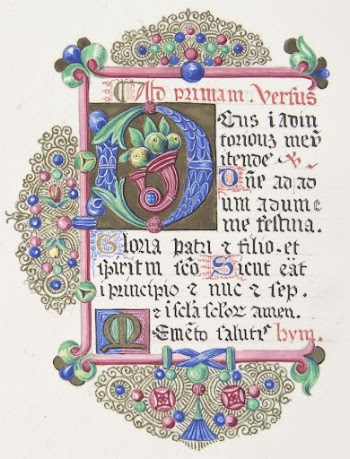 Ad primam Versus
Deus i adiu
toriouz meū
itende
Dñe ad ad
um adume
me festina.
Gloria patri ⁊ filio. et
spiritm sc̄o Sicut eāt
i principio ⁊ nūc ⁊ sep.
⁊ i sc̄la sc̄lor amen.
Memēto salutē hym.